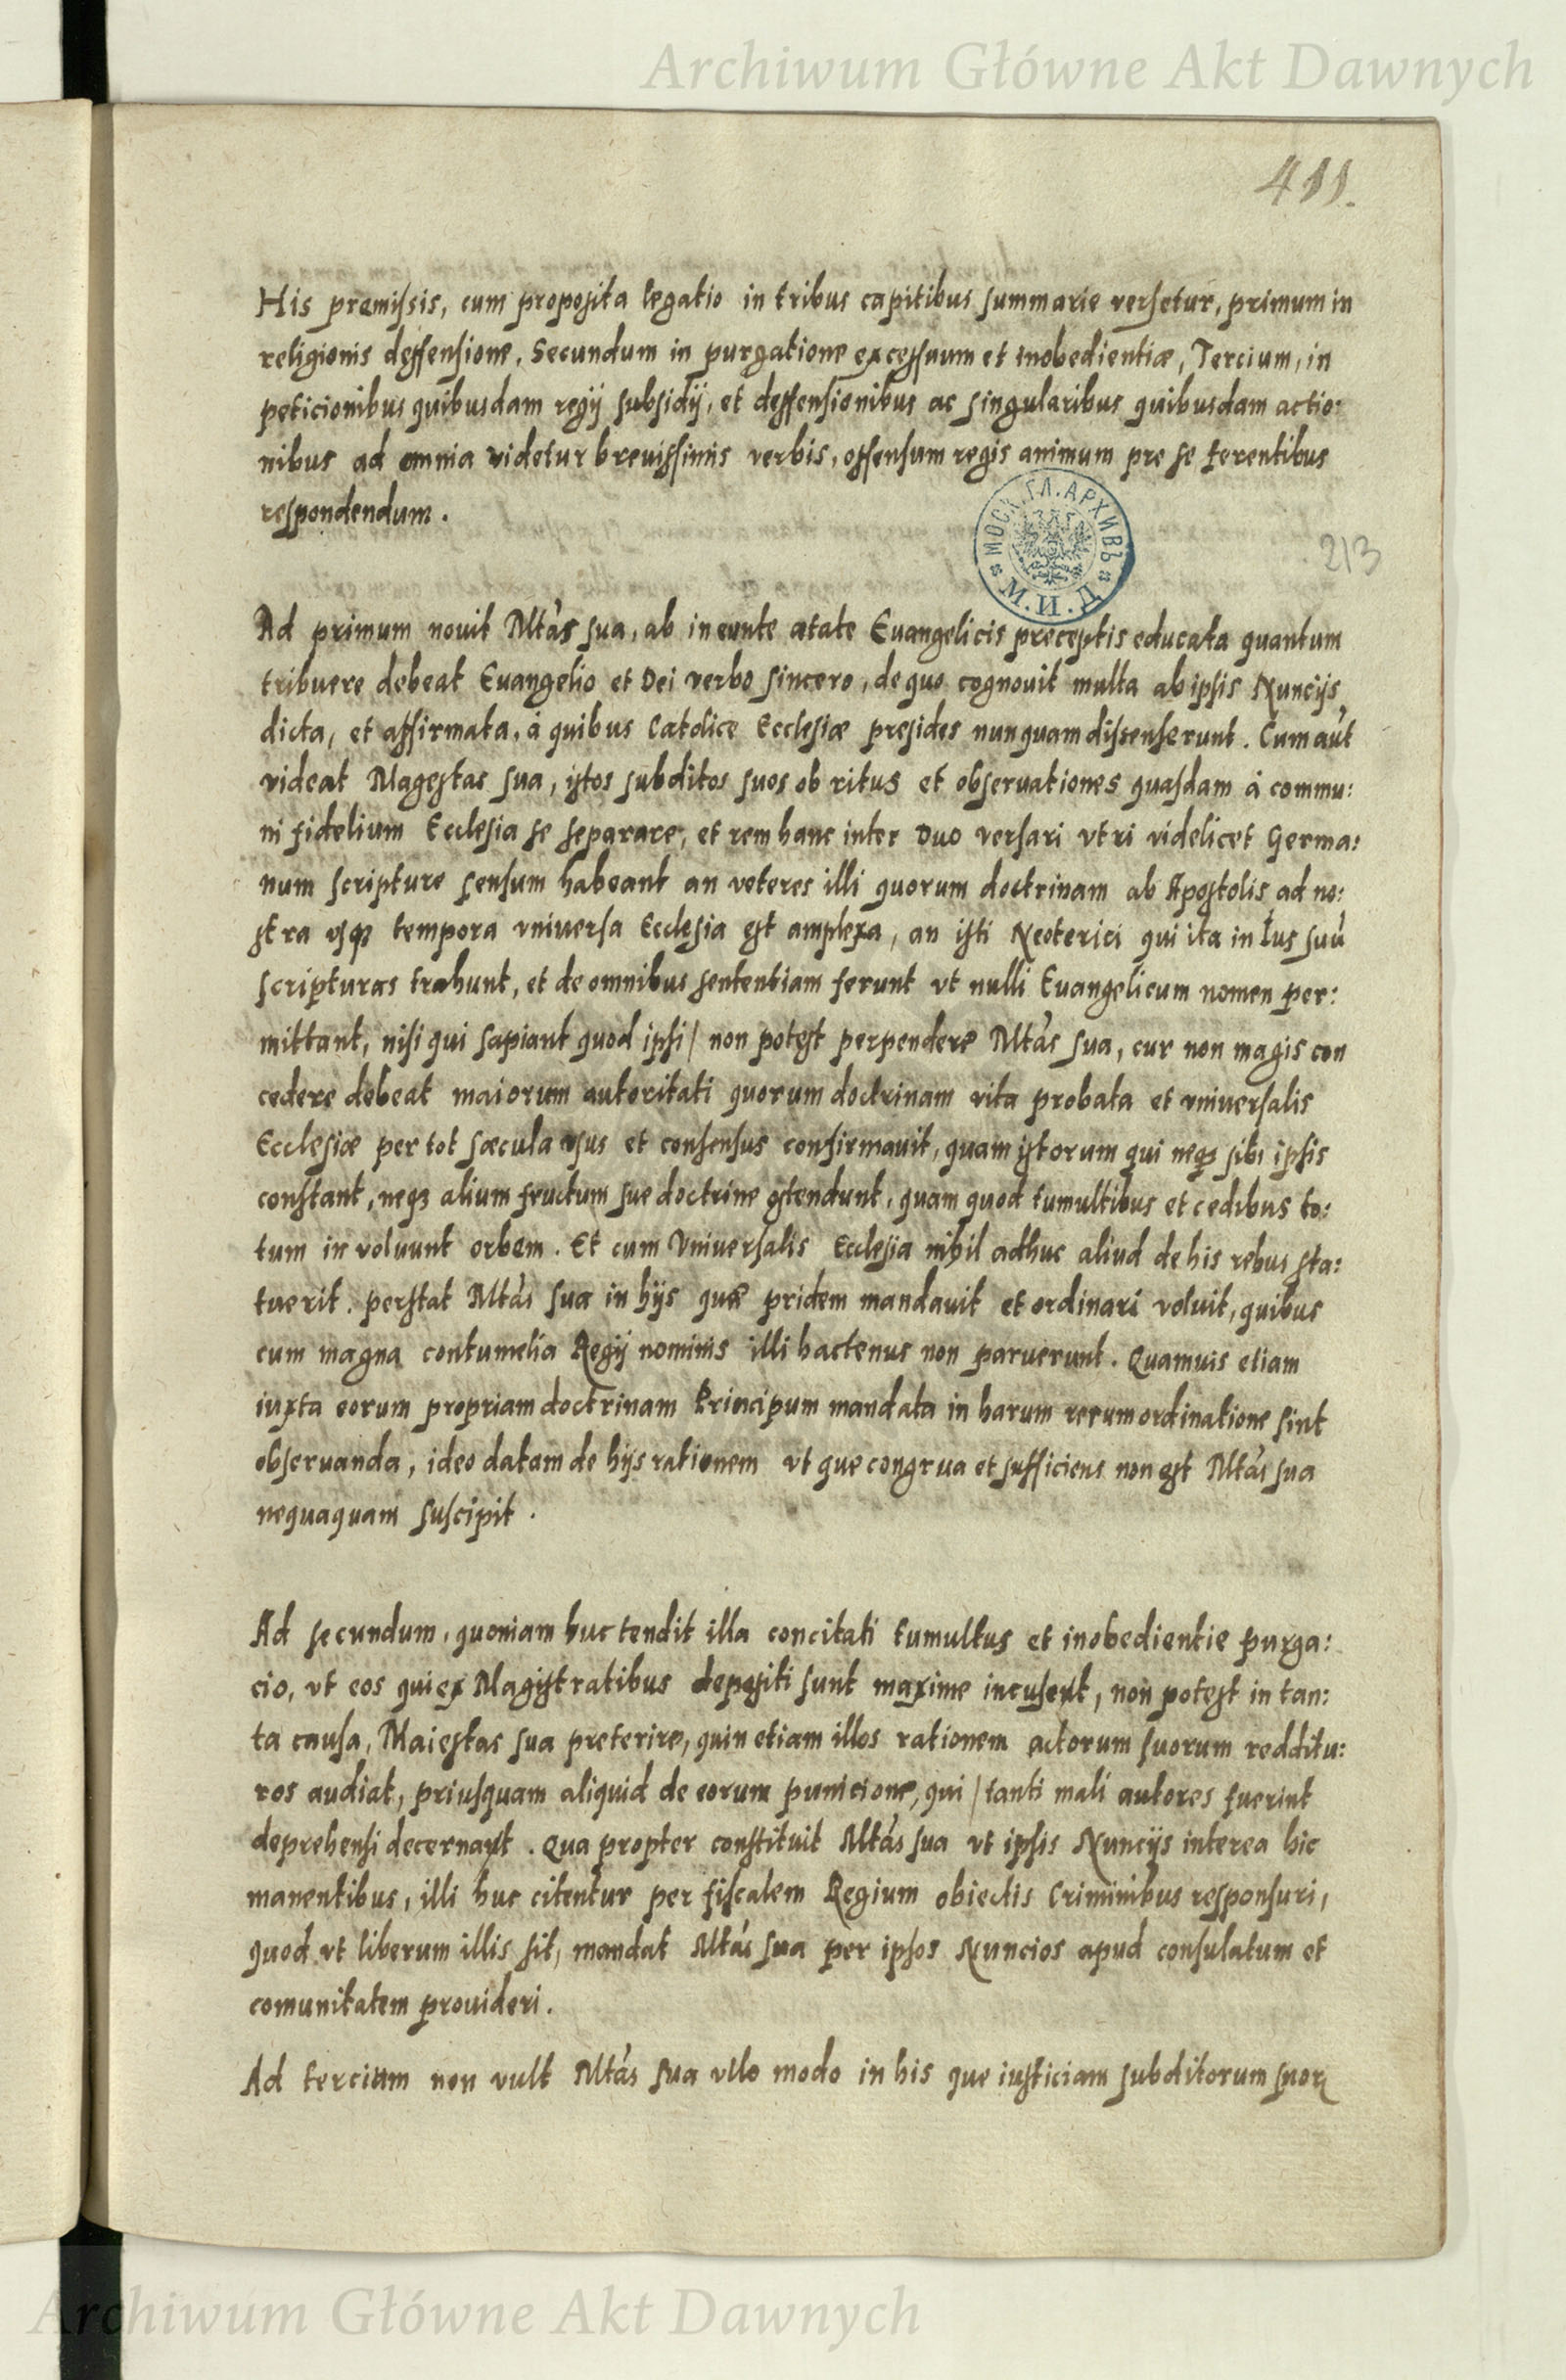 Archiwum Główne Akt Dawnych
411.
His premissis, cum proposita legatio in tribus capitibus summarie versetur, primum in
religionis deffensione, Secundum in purgatione excessuum et inobedientiæ, Tercium, in
peticionibus quibusdam regij subsidij, et deffensionibus ac singularibus quibusdam actio:
nibus ad omnia videtur breuissimis verbis, offensum regis animum pre se ferentibus
respondendum.
МОСК. ГЛ. АРХИВЪ
М. И. Д.
213
Ad primum nouit Mtàs sua, ab ineunte ætate Euangelicis preceptis educata quantum
tribuere debeat Euangelio et Dei verbo sincero, de quo cognouit multa ab ipsis Nuncijs
dicta, et affirmata, à quibus Catolice Ecclesiæ presides nunquam dissenserunt. Cum aut̃
videat Magestas sua, istos subditos suos ob ritus et obseruationes quasdam à commu:
ni fidelium Ecclesia se separare, et rem hanc inter duo versari vtri videlicet Germa:
num scripture sensum habeant an veteres illi quorum doctrinam ab Apostolis ad no:
stra vsq; tempora vniuersa Ecclesia est amplexa, an isti Neoterici qui ita in Ius suũ
scripturas trahunt, et de omnibus sententiam ferunt vt nulli Euangelicum nomen per:
mittant, nisi qui sapiant quod ipsi / non potest perpendere Mtàs sua, cur non magis con
cedere debeat maiorum autoritati quorum doctrinam vita probata et vniuersalis
Ecclesiæ per tot sæcula vsus et consensus confirmauit, quam istorum qui neq; sibi ipsis
constant, neq; alium fructum sue doctrine ostendunt, quam quod tumultibus et cedibus to:
tum inuoluunt orbem. Et cum Vniuersalis Ecclesia nihil adhuc aliud de his rebus sta:
tuerit. perstat Mtàs sua in hijs quæ pridem mandauit et ordinari voluit, quibus
cum magna contumelia Regij nominis illi hactenus non paruerunt. Quamuis etiam
iuxta eorum propriam doctrinam Principum mandata in harum rerum ordinatione sint
obseruanda, ideo datam de hijs rationem vt que congrua et sufficiens non est Mtàs sua
nequaquam suscipit.
Ad secundum, quoniam huc tendit illa concitati tumultus et inobedientie purga:
cio, vt eos qui ex Magistratibus depositi sunt maxime incusent, non potest in tan:
ta causa, Maiestas sua preterire, quin etiam illos rationem actorum suorum redditu:
ros audiat, priusquam aliquid de eorum punicione, qui / tanti mali autores fuerint
deprehensi decernant. Qua propter constituit Mtàs sua vt ipsis Nuncijs interea hic
manentibus, illi huc citentur per fiscalem Regium obiectis Criminibus responsuri,
quod vt liberum illis sit, mandat Mtàs sua per ipsos Nuncios apud consulatum et
comunitatem prouideri.
Ad tercium non vult Mtàs sua vllo modo in his que iusticiam subditorum suoꝝ
Archiwum Główne Akt Dawnych